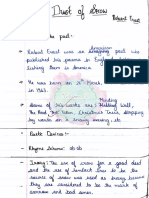 Dust of Snow
Robert Frost
the poet:-
American
Robert Frost was an poet who
published his poems in England before
in America.
He was born on 26 March,
in 1963.
Mending
Some of his works are : Wall,
The Road Not Taken, Christmas Trees, Stopping
by Woods on a Snowy Evening, etc
Poetic Devices :-
Rhyme Scheme: abab
Irony: The use of crow for a good deed
and the use of hemlock tree to be the
source of snow was used as irony because
they are considered to be the mark of
sorrow and bad omen.